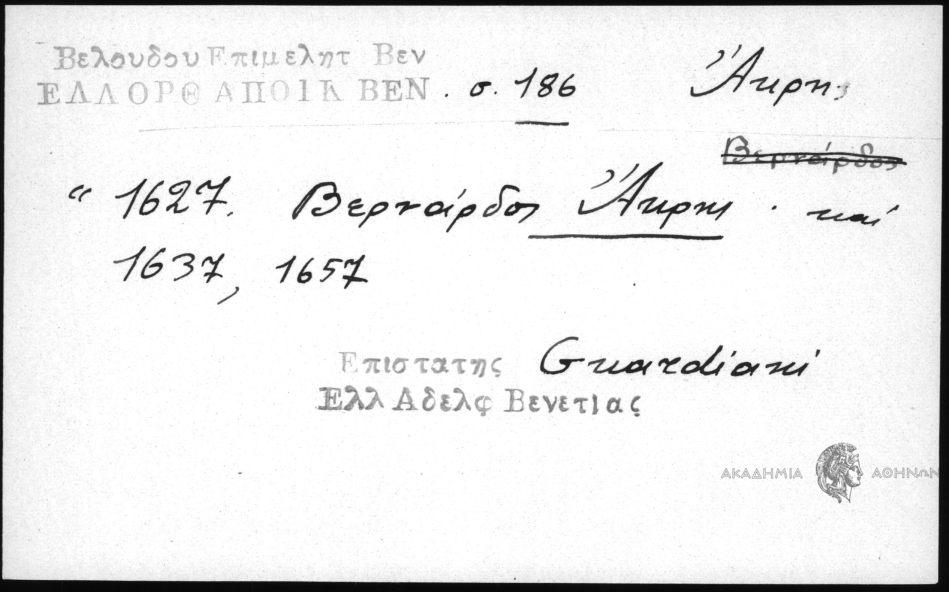 Βελουδου Επιμελητ Βεν
ΕΛΛΟΡΘ ΑΠΟΙΚ ΒΕΝ . σ. 186 Ἄκρης
Βερνάρδος
" 1627. Βερνάρδος Ἄκρης . καί
1637, 1657
Επιστατης Guardiani
Ελλ Αδελφ Βενετιας
ΑΚΑΔΗΜΙΑ ΑΘΗΝΩΝ